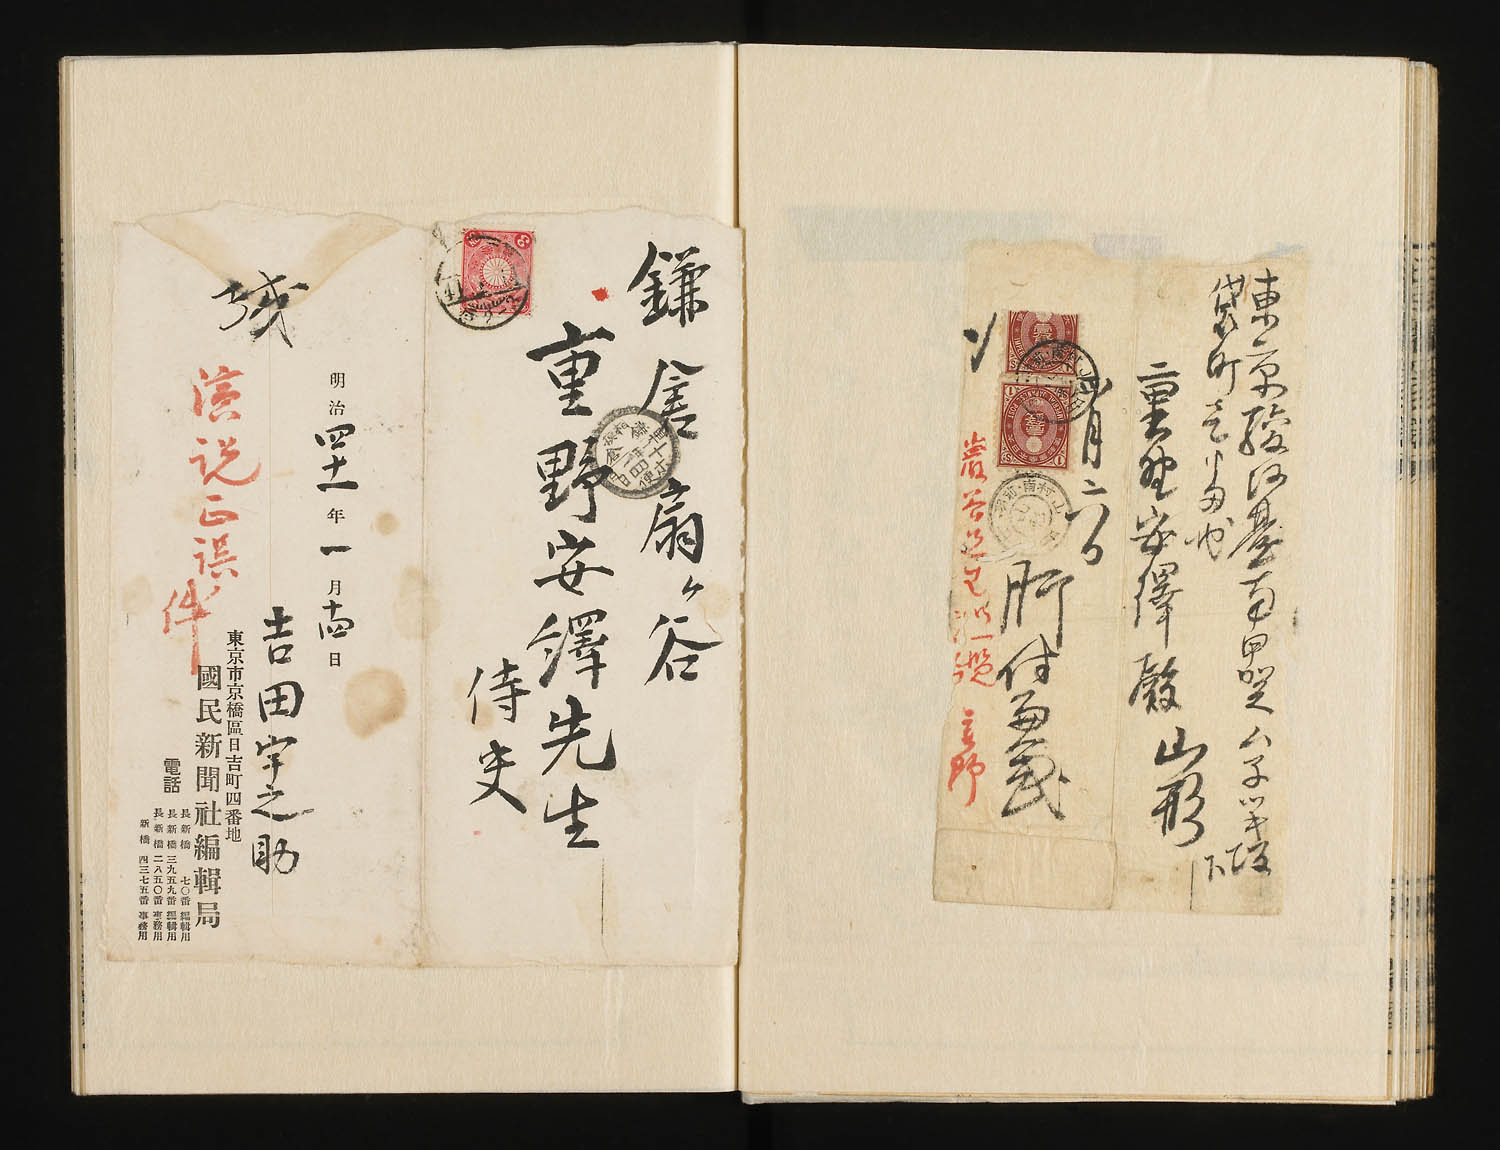 東京駿河臺南甲賀
袋町
重野安繹殿
山形
月二六日
肝付兼武
鎌倉扇ヶ谷
重野安繹先生
侍史
緘
明治四十一年一月十四日
演説正誤
件
吉田宇之助
東京市京橋區日吉町四番地
國民新聞社編輯局
電話
長新橋 七〇番 編輯用
長新橋 三九五九番 編輯用
長新橋 二八五〇番 事務用
新橋 四三七五番 事務用